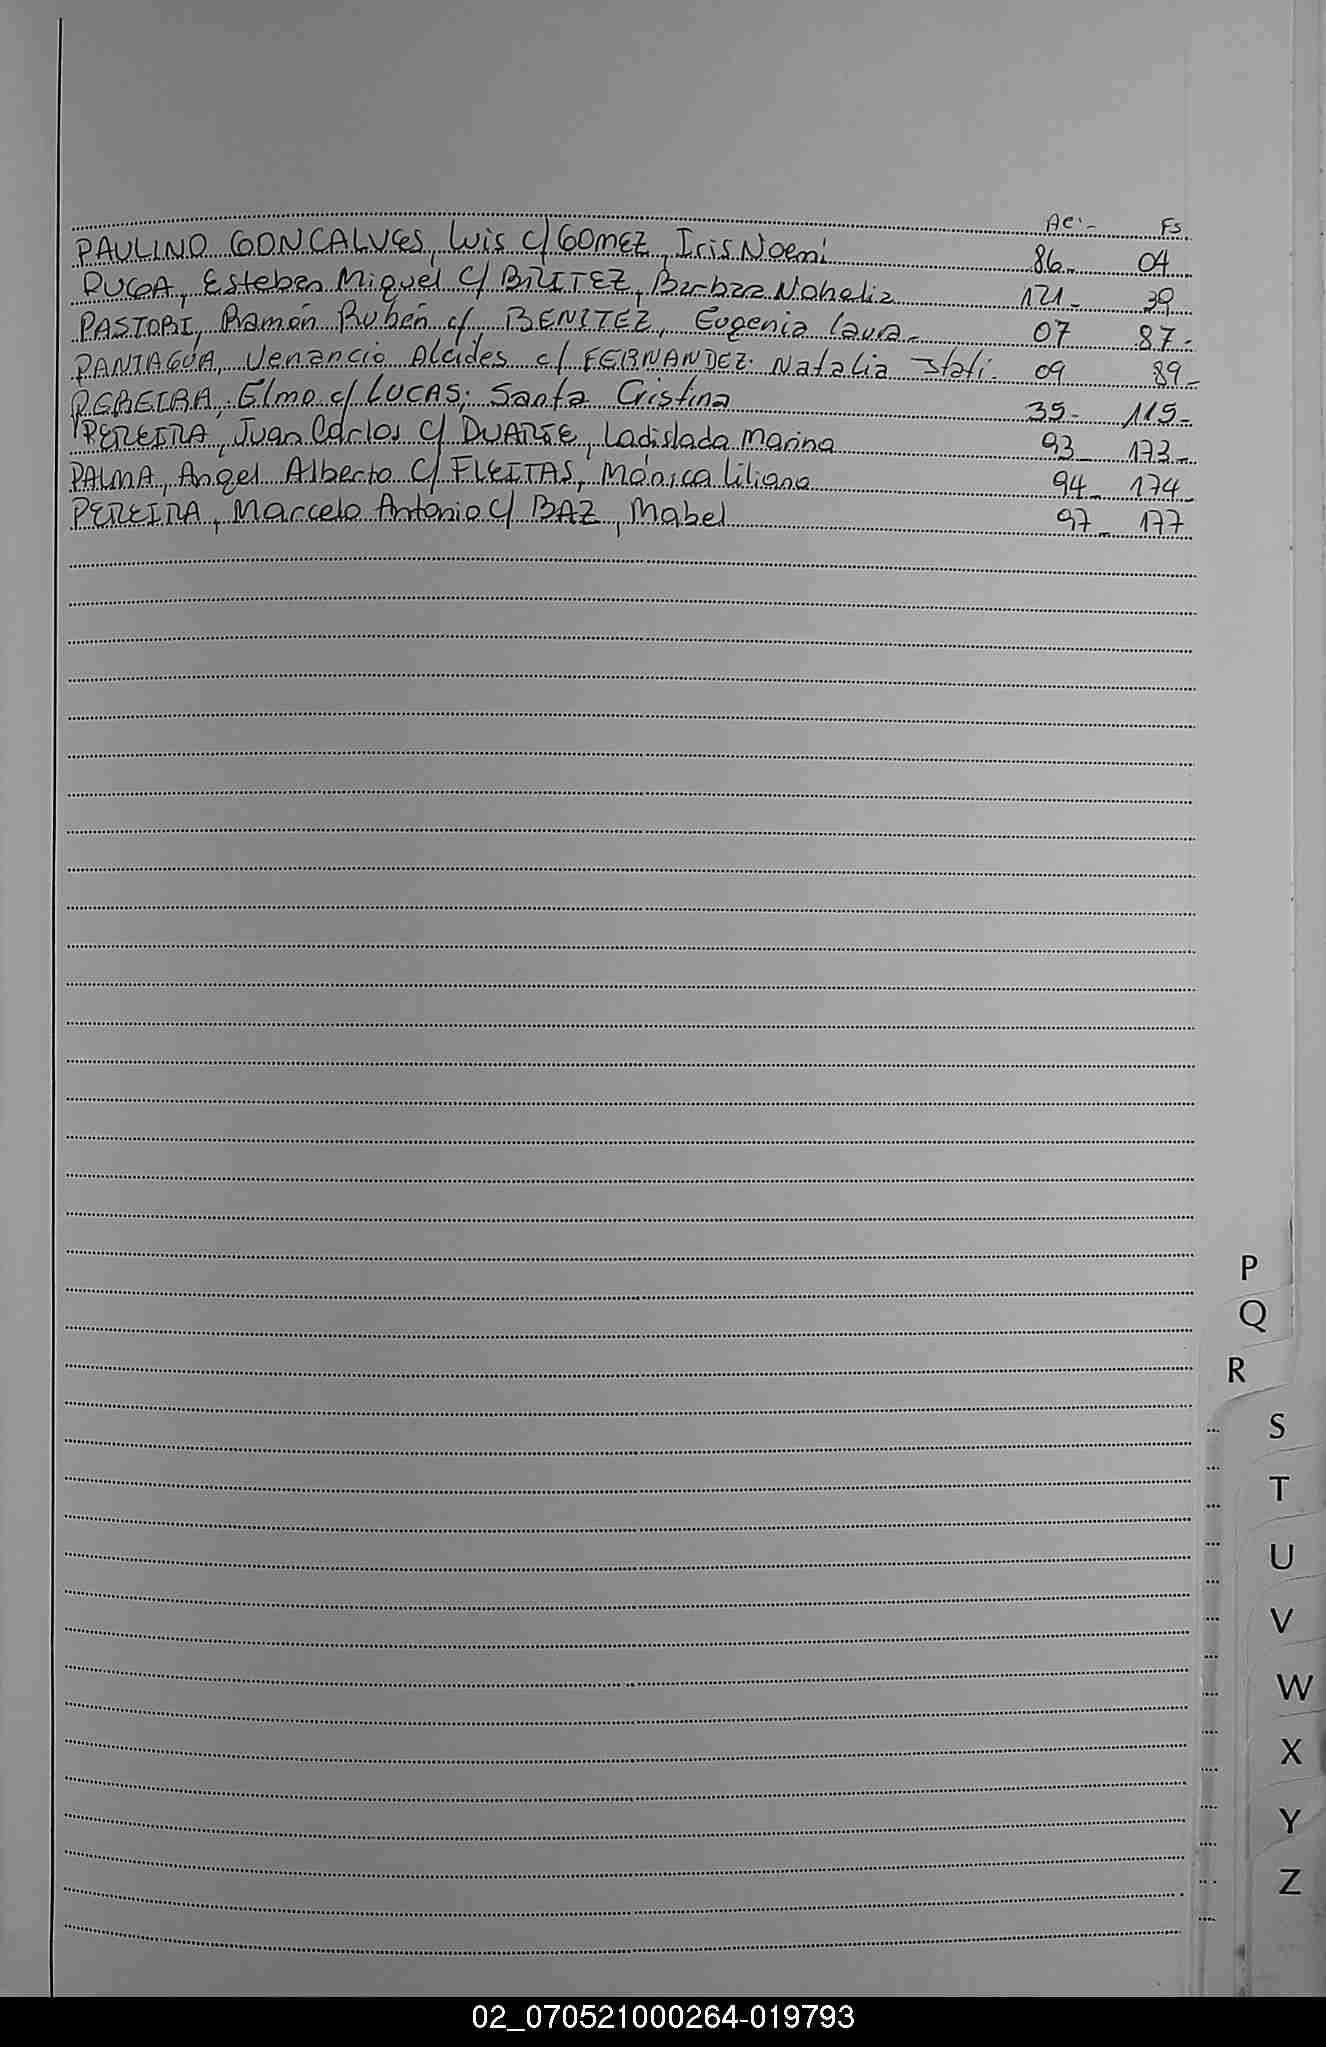 Ac.- Fs.
PAULINO GONCALVES, Luis c/ GOMEZ, Iris Noemi 86- 04
PUGA, Esteban Miguel C/ BRITEZ, Barbara Nohelia 121- 39
PASTORI, Ramón Rubén c/, BENITEZ, Eugenia Laura.- 07 87-
PANIAGUA, Venancio Alcides c/ FERNANDEZ. Natalia Itatí. 09 89-
PEREIRA, Elmo c/ LUCAS; Santa Cristina 35- 115-
PEREIRA, Juan Carlos C/ DUARTE, Ladislada Marina 93- 173-
PALMA, Angel Alberto C/ FLEITAS, Mónica Liliana 94- 174-
PEREIRA, Marcelo Antonio C/ BAZ, Mabel 97- 177
P
Q
R
S
T
U
V
W
X
Y
Z
02_070521000264-019793